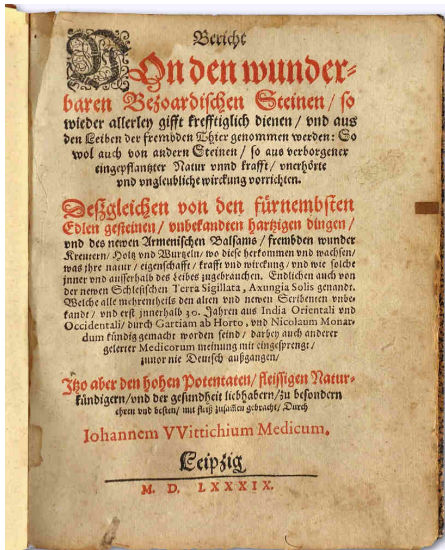 Bericht
VOn den wunder-
baren Bezoardischen Steinen / so
wieder allerley gifft krefftiglich dienen / vnd aus
den Leiben der frembden Thier genommen werden: So
wol auch von andern Steinen / so aus verborgener
eingepflantzter Natur vnnd krafft / vnerhörte
vnd vngleubliche wirckung vorrichten.
Deßgleichen von den fürnembsten
Edlen gesteinen / vnbekandten hartzigen dingen /
vnd des newen Armenischen Balsams / frembden wunder
Kreutern / Holtz vnd Wurtzeln / wo diese herkommen vnd wachsen /
was ihre natur / eigenschafft / krafft vnd wirckung / vnd wie solche
jnner vnd ausserhalb des Leibes zugebrauchen. Endlichen auch von
der newen Schlesischen Terra Sigillata, Axungia Solis genandt.
Welche alle mehrentheils den alten vnd newen Scribenten vnbe-
kandt / vnd erst jnnerhalb 30. Jahren aus India Orientali vnd
Occidentali / durch Gartiam ab Horto, vnd Nicolaum Monar-
dum kündig gemacht worden seind / darbey auch anderer
gelerter Medicorum meinung mit eingesprengt /
zuuor nie Deutsch außgangen /
Itzo aber den hohen Potentaten / fleissigen Natur-
kündigern / vnd der gesundheit liebhabern / zu besondern
ehren vnd besten / mit fleiß zusam̃en gebracht / Durch
Iohannem VVittichium Medicum.
Leipzig
M. D. LXXXIX.